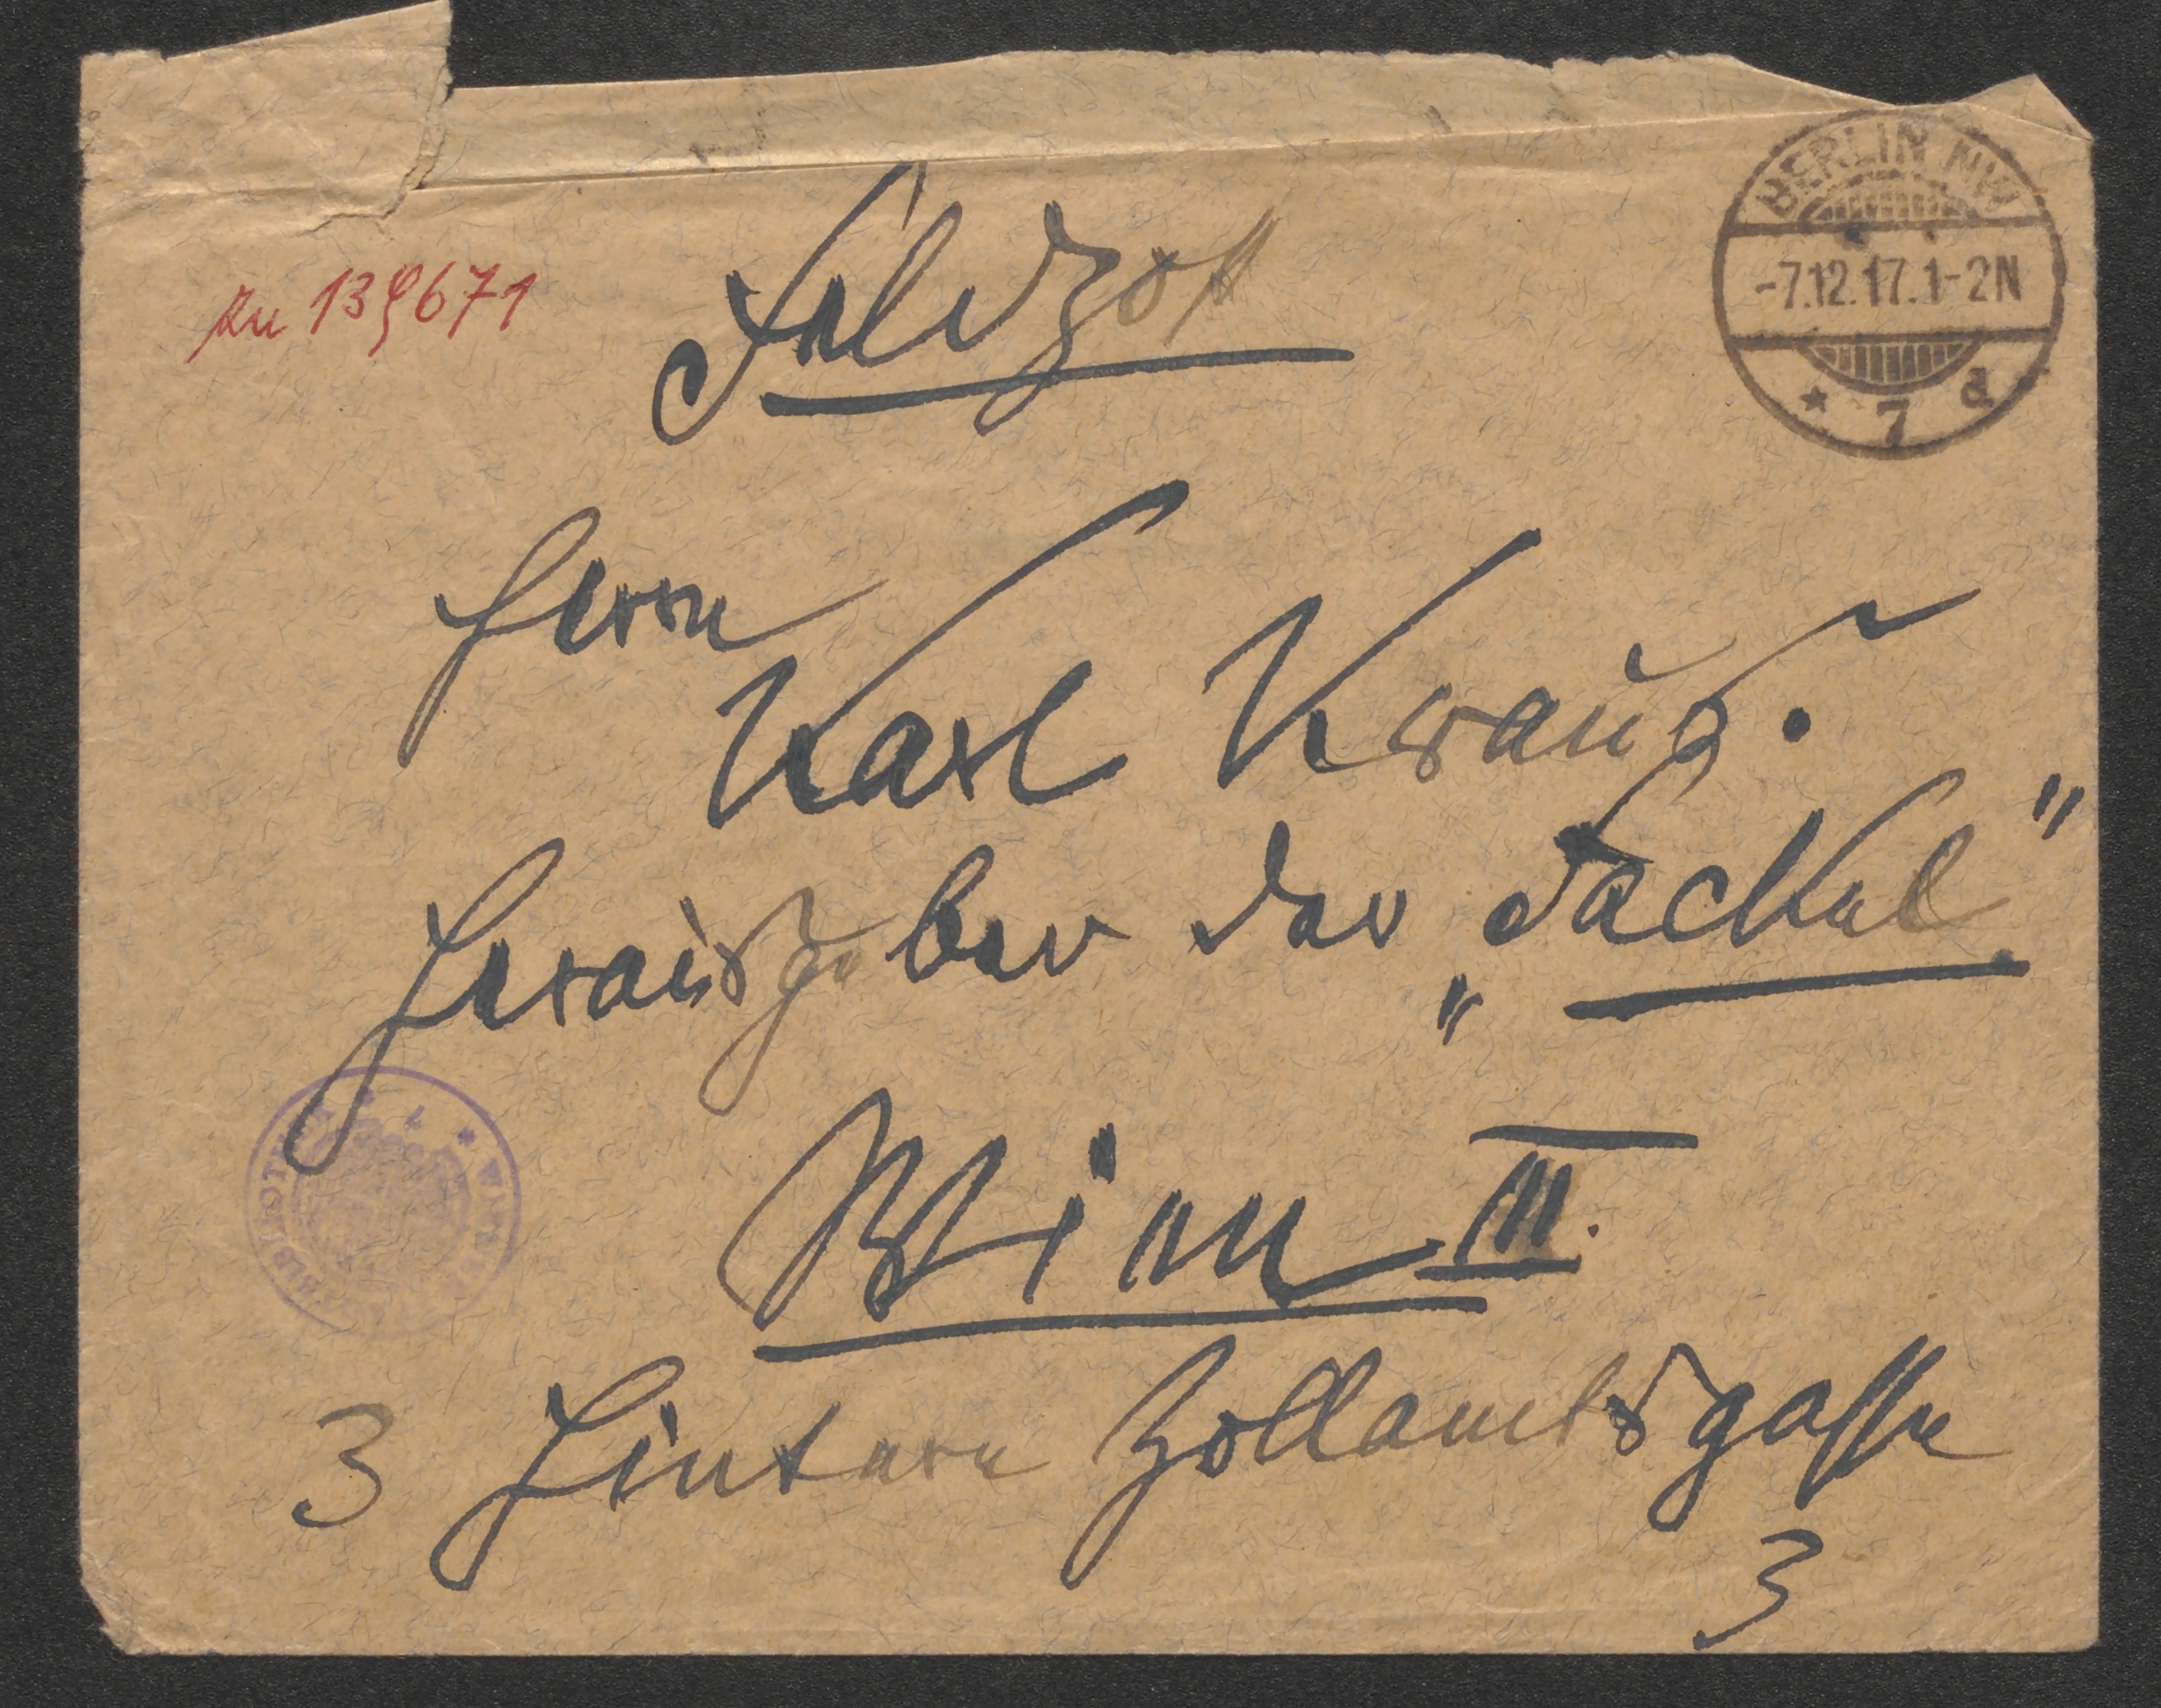 BERLIN NW
-7.12.17.1-2N
* 7 d
zu 139671
Feldpost
Herrn
Karl Kraus.
Herausgeber der „Fackel"
Wien III.
3 Hintere Zollamtsgasse
3